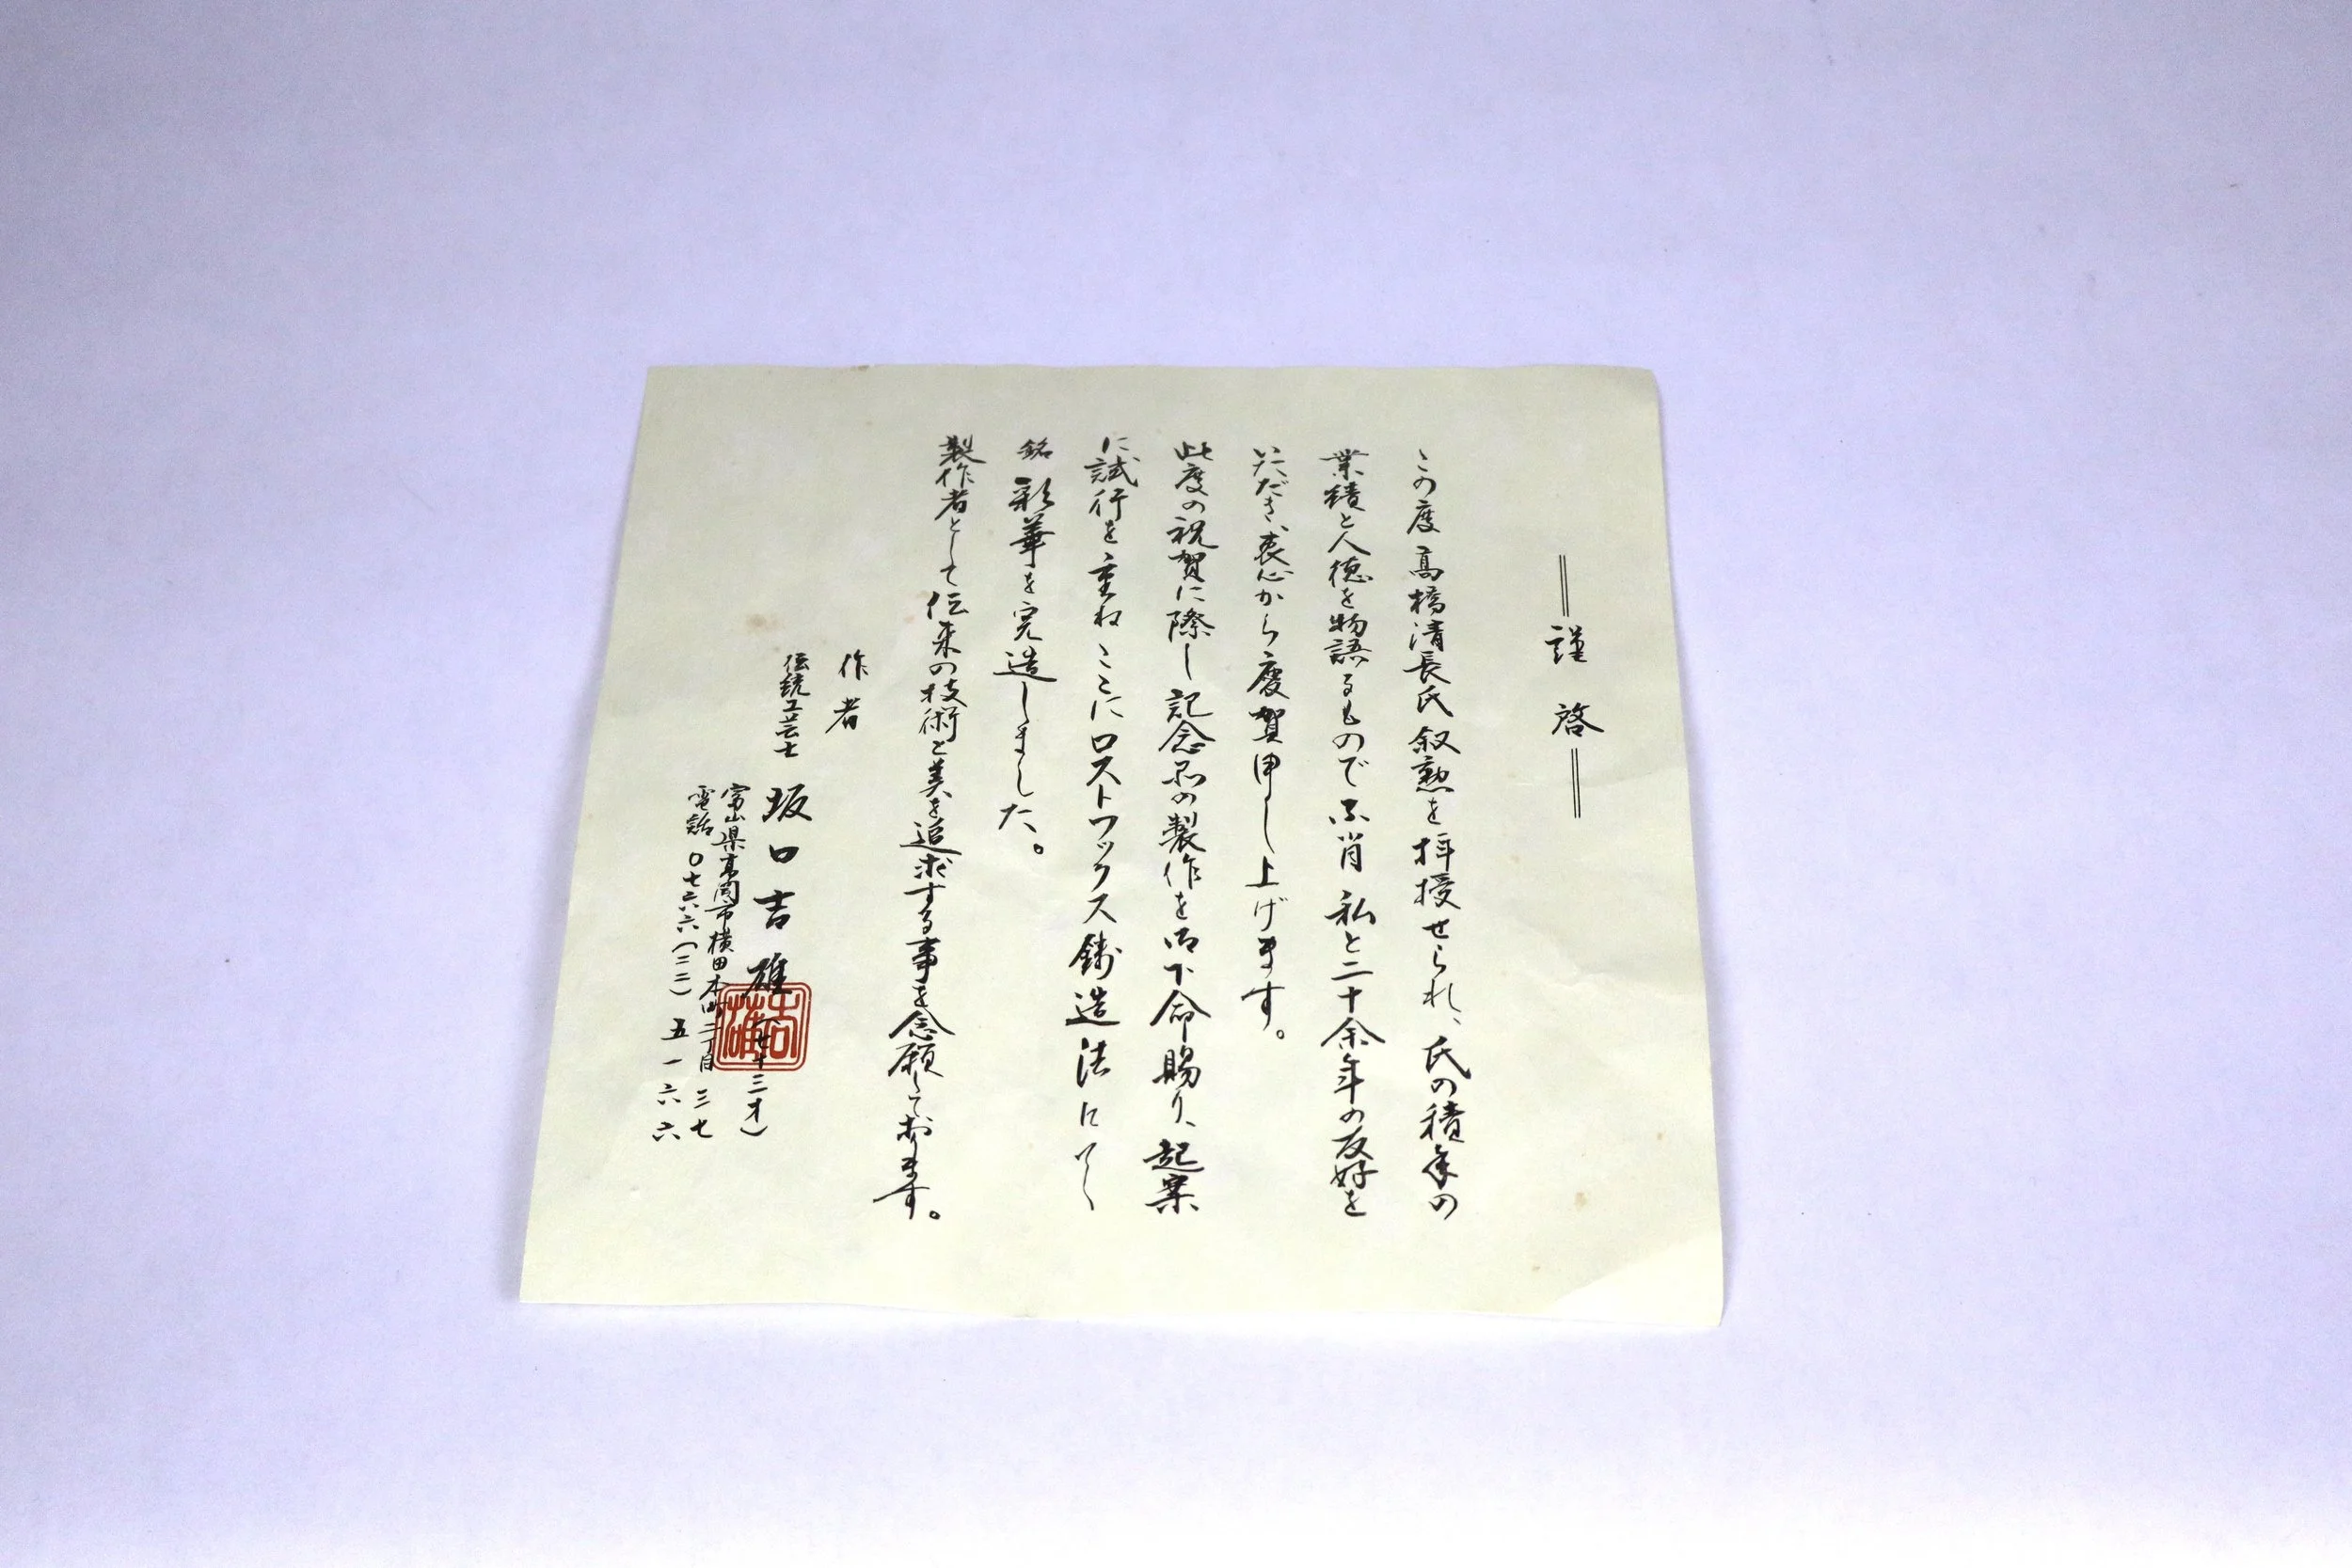 謹啓
この度高橋清長氏叙勲を拝授せられ、氏の積年の
業績と人徳を物語るもので不肖私と二十余年の友好を
いただき、衷心から慶賀申し上げます。
此度の祝賀に際し記念品の製作を御下命賜り、起案
に試行を重ねここにロストワックス鋳造法にて
銘彩華を完造しました。
製作者として伝来の技術と美を追求する事を念願しております。
作者
伝統工芸士 坂口吉雄(七十三才)
富山県高岡市横田本町二丁目三七
電話〇七六六(二二)五一六六
吉雄